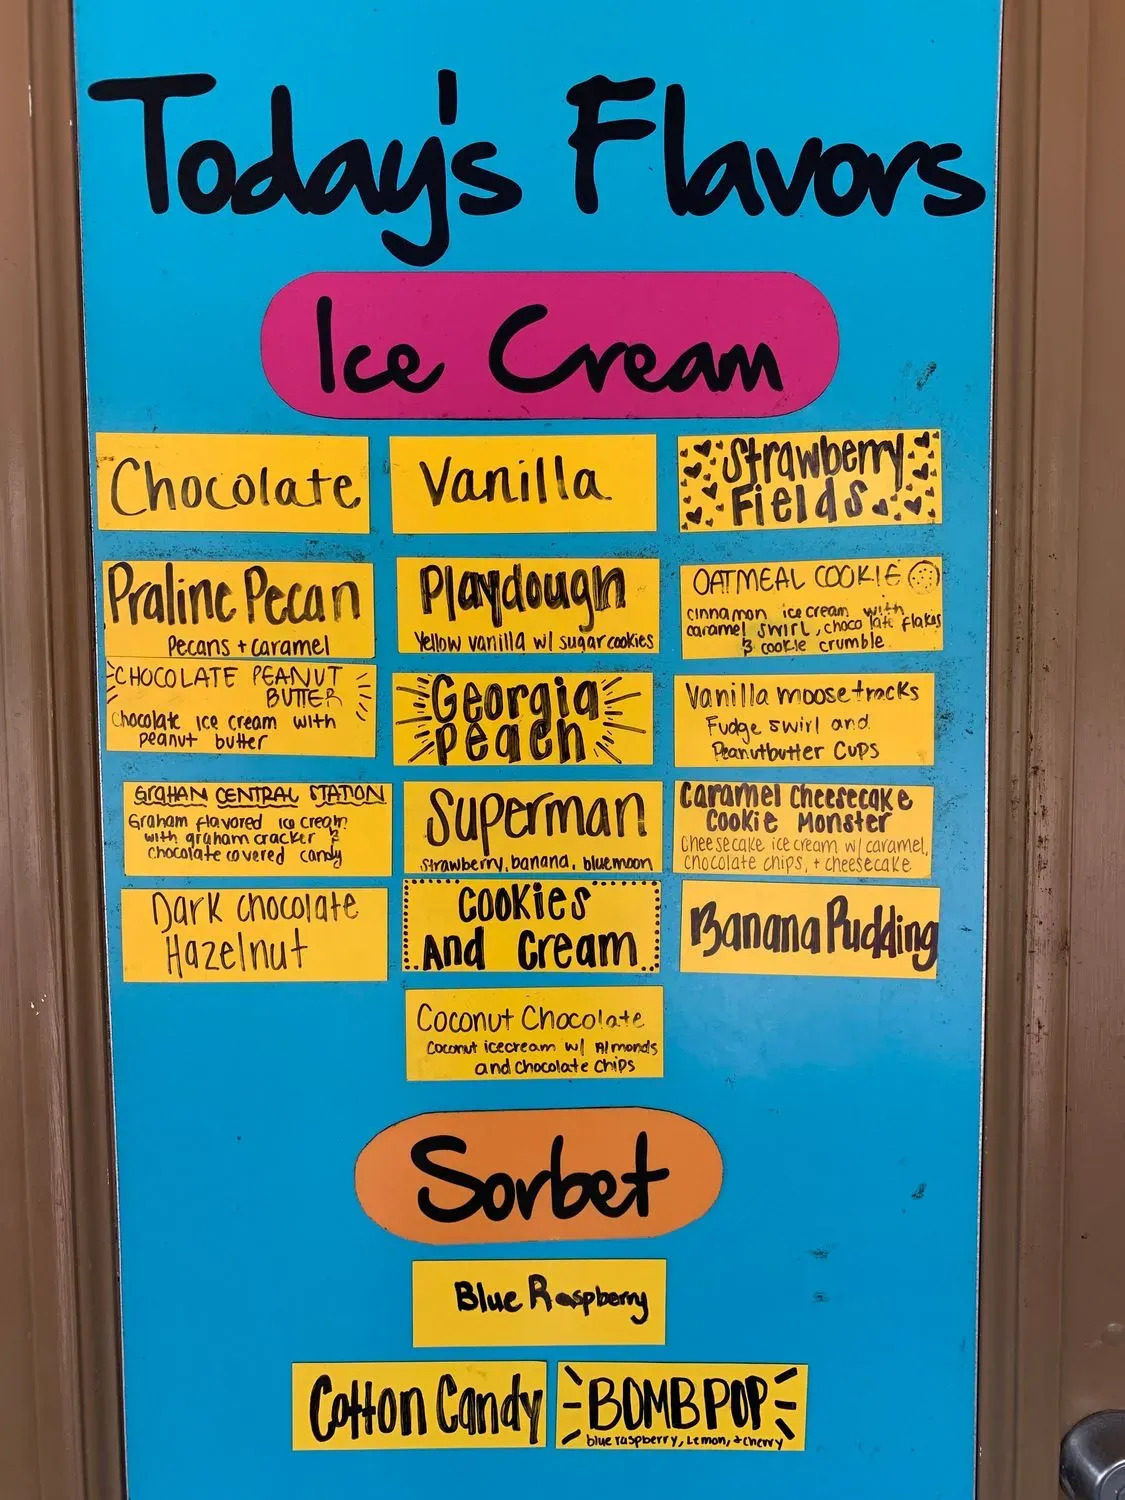 Today's Flavors
Ice Cream
Chocolate
Vanilla
Strawberry
Fields
Praline Pecan
Pecans + caramel
Playdough
Yellow vanilla w/ sugar cookies
OATMEAL COOKIE
cinnamon ice cream with
caramel swirl, chocolate flakes
& cookie crumble
CHOCOLATE PEANUT
BUTTER
Chocolate ice cream with
peanut butter
Georgia
Peach
Vanilla moosetracks
Fudge swirl and
Peanutbutter Cups
GRAHAM CENTRAL STATION
Graham flavored ice cream
with graham cracker &
chocolate covered candy
Superman
strawberry, banana, bluemoon
Caramel Cheesecake
Cookie Monster
Cheesecake ice cream w/ caramel,
chocolate chips, + cheesecake
Dark chocolate
Hazelnut
COOKIES
And Cream
Banana Pudding
Coconut Chocolate
Coconut icecream w/ Almonds
and Chocolate Chips
Sorbet
Blue Raspberry
Cotton Candy
BOMB POP
blue raspberry, Lemon, + cherry